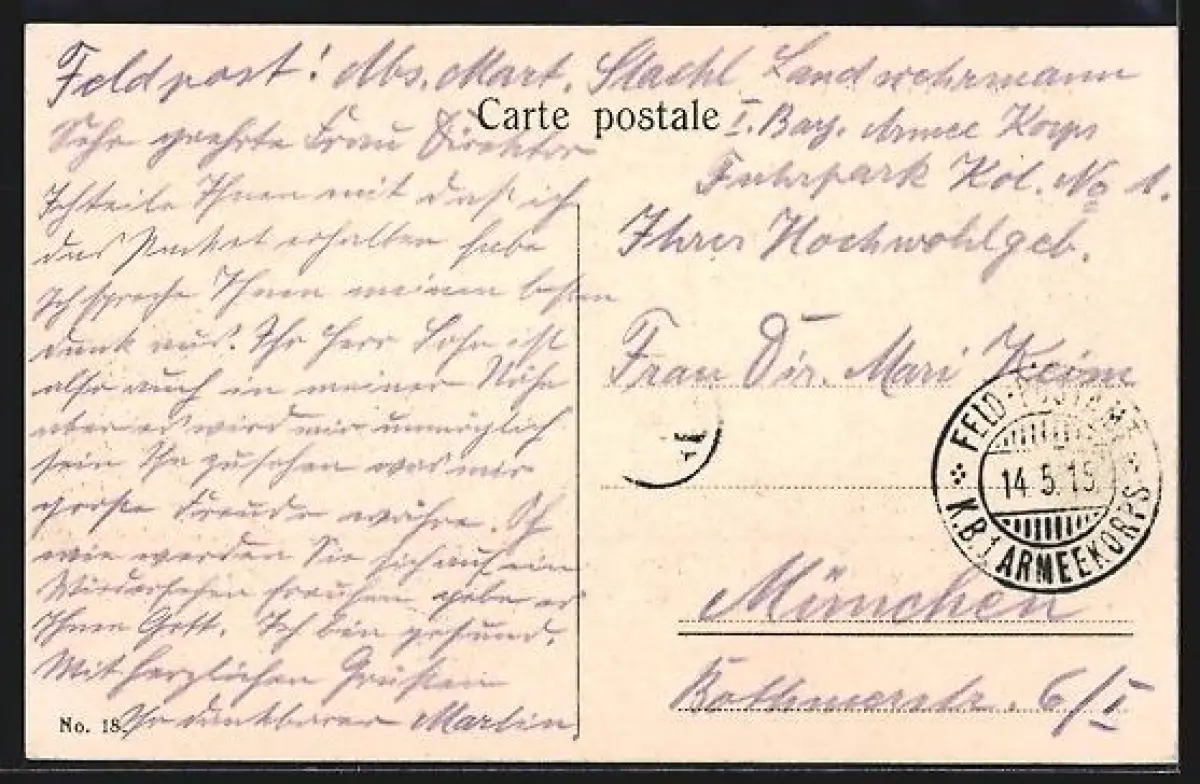 Feldpost! Abs. Mart. Stachl Landwehrmann
Carte postale
I. Bay. Armee Korps
Fuhrpark Kol. No 1.
Sehr geehrte Frau Direktor
Ich teile Ihnen mit daß ich
das Packet erhalten habe
Ich spreche Ihnen meinen besten
Dank aus. Ihr Herr Sohn ist
also auch in meiner Nähe
aber es wird mir unmöglich
sein Ihn zusehen was mir
große Freude währe. O
wie werden Sie sich auf ein
Wiedersehen freuhen gebe es
Ihnen Gott. Ich bin gesund.
Mit herzlichen Grüßen
Ihr dankbarer Martin
No. 18.
Ihrer Hochwohlgeb.
Frau Dir. Mari Keim
München
6/I
FELD-POSTAMT
14.5.15
K.B. I ARMEEKORPS